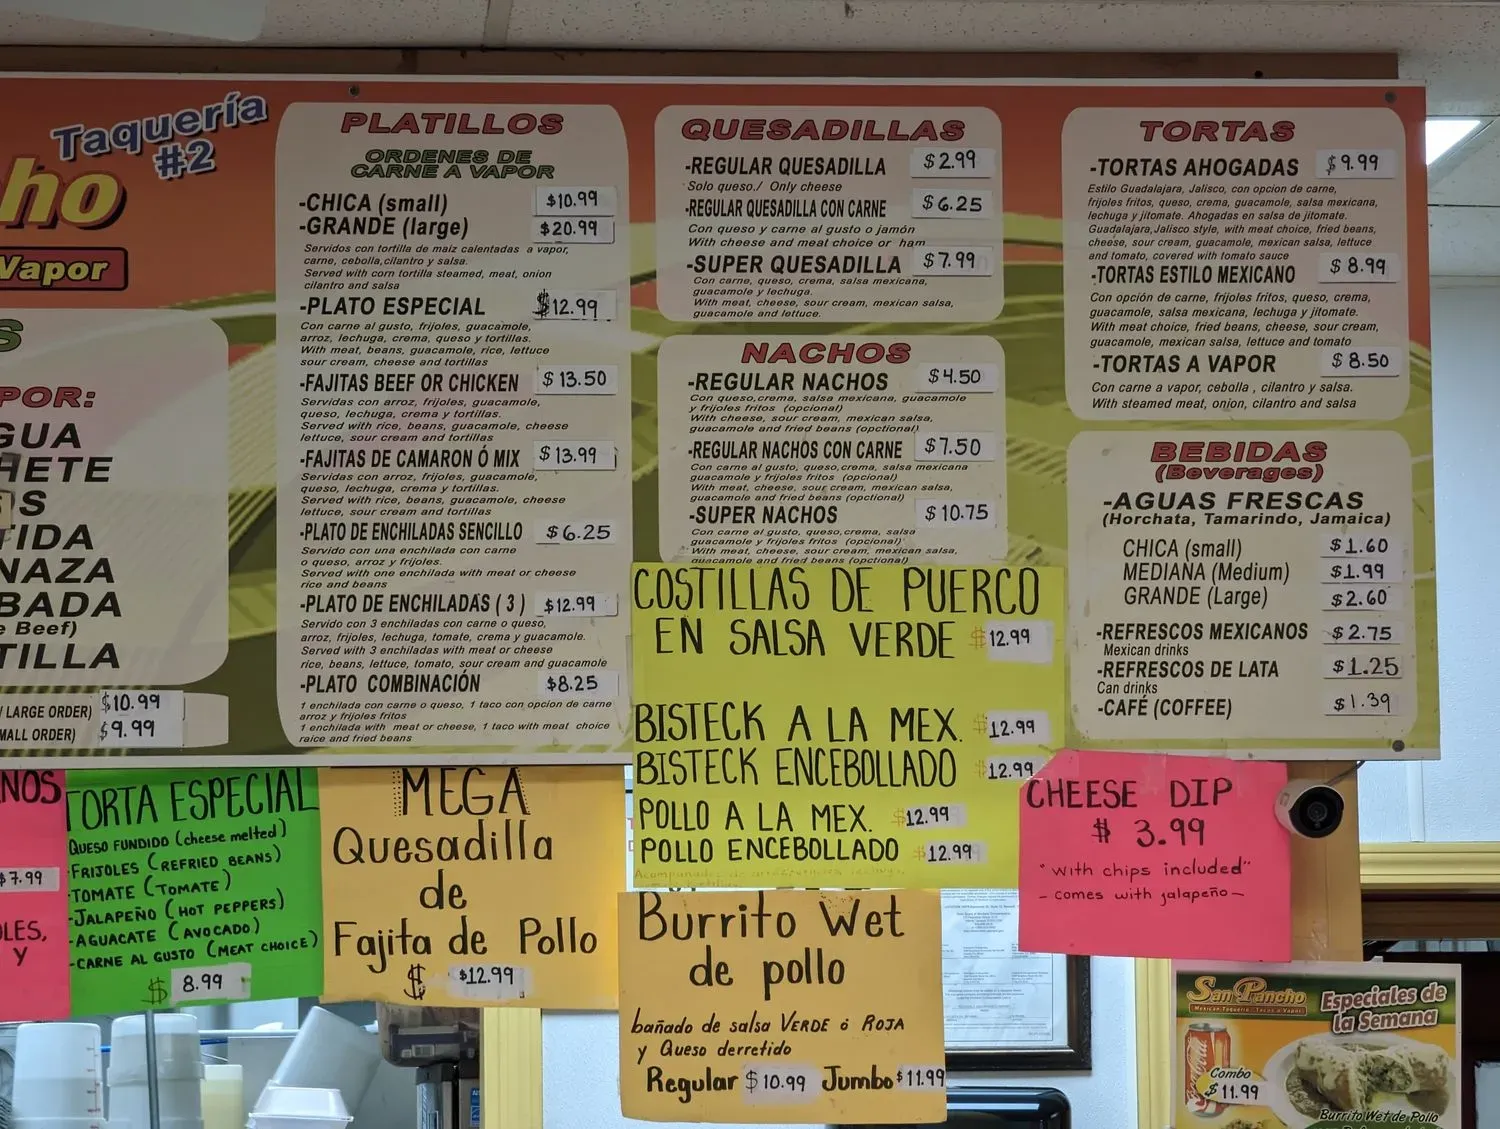 Taquería
#2
Vapor
PLATILLOS
ORDENES DE
CARNE A VAPOR
-CHICA (small) $10.99
-GRANDE (large) $20.99
Servidos con tortilla de maiz calentadas a vapor,
carne, cebolla,cilantro y salsa.
Served with corn tortilla steamed, meat, onion
cilantro and salsa
-PLATO ESPECIAL $12.99
Con carne al gusto, frijoles, guacamole,
arroz, lechuga, crema, queso y tortillas.
With meat, beans, guacamole, rice, lettuce
sour cream, cheese and tortillas
-FAJITAS BEEF OR CHICKEN $13.50
Servidas con arroz, frijoles, guacamole,
queso, lechuga, crema y tortillas.
Served with rice, beans, guacamole, cheese
lettuce, sour cream and tortillas
-FAJITAS DE CAMARON Ó MIX $13.99
Servidas con arroz, frijoles, guacamole,
queso, lechuga, crema y tortillas.
Served with rice, beans, guacamole, cheese
lettuce, sour cream and tortillas
-PLATO DE ENCHILADAS SENCILLO $6.25
Servido con una enchilada con carne
o queso, arroz y frijoles.
Served with one enchilada with meat or cheese
rice and beans
-PLATO DE ENCHILADAS ( 3 ) $12.99
Servido con 3 enchiladas con carne o queso,
arroz, frijoles, lechuga, tomate, crema y guacamole.
Served with 3 enchiladas with meat or cheese
rice, beans, lettuce, tomato, sour cream and guacamole
-PLATO COMBINACIÓN $8.25
1 enchilada con carne o queso, 1 taco con opcion de carne
arroz y frijoles fritos
1 enchilada with meat or cheese, 1 taco with meat choice
raice and fried beans
QUESADILLAS
-REGULAR QUESADILLA $2.99
Solo queso./ Only cheese
-REGULAR QUESADILLA CON CARNE $6.25
Con queso y carne al gusto o jamón
With cheese and meat choice or ham
-SUPER QUESADILLA $7.99
Con carne, queso, crema, salsa mexicana,
guacamole y lechuga.
With meat, cheese, sour cream, mexican salsa,
guacamole and lettuce.
NACHOS
-REGULAR NACHOS $4.50
Con queso,crema, salsa mexicana, guacamole
y frijoles fritos (opcional)
With cheese, sour cream, mexican salsa,
guacamole and fried beans (optional)
-REGULAR NACHOS CON CARNE $7.50
Con carne al gusto, queso,crema, salsa mexicana
guacamole y frijoles fritos (opcional)
With meat, cheese, sour cream, mexican salsa,
guacamole and fried beans (opctional)
-SUPER NACHOS $10.75
Con carne al gusto, queso,crema, salsa
guacamole y frijoles fritos (opcional)
With meat, cheese, sour cream, mexican salsa,
guacamole and fried beans (opctional)
TORTAS
-TORTAS AHOGADAS $9.99
Estilo Guadalajara, Jalisco, con opcion de carne,
frijoles fritos, queso, crema, guacamole, salsa mexicana,
lechuga y jitomate. Ahogadas en salsa de jitomate.
Guadalajara,Jalisco style, with meat choice, fried beans,
cheese, sour cream, guacamole, mexican salsa, lettuce
and tomato, covered with tomato sauce
-TORTAS ESTILO MEXICANO $8.99
Con opción de carne, frijoles fritos, queso, crema,
guacamole, salsa mexicana, lechuga y jitomate.
With meat choice, fried beans, cheese, sour cream,
guacamole, mexican salsa, lettuce and tomato
-TORTAS A VAPOR $8.50
Con carne a vapor, cebolla , cilantro y salsa.
With steamed meat, onion, cilantro and salsa
BEBIDAS
(Beverages)
-AGUAS FRESCAS
(Horchata, Tamarindo, Jamaica)
CHICA (small) $1.60
MEDIANA (Medium) $1.99
GRANDE (Large) $2.60
-REFRESCOS MEXICANOS $2.75
Mexican drinks
-REFRESCOS DE LATA $1.25
Can drinks
-CAFÉ (COFFEE) $1.39
POR:
GUA
HETE
OS
TIDA
NAZA
BADA
e Beef)
TILLA
/ LARGE ORDER) $10.99
MALL ORDER) $9.99
NOS
$7.99
LES,
Y
TORTA ESPECIAL
QUESO FUNDIDO (cheese melted)
-FRIJOLES (REFRIED BEANS)
-TOMATE (TOMATE)
-JALAPEÑO (HOT PEPPERS)
-AGUACATE (AVOCADO)
-CARNE AL GUSTO (MEAT CHOICE)
$ 8.99
MEGA
Quesadilla
de
Fajita de Pollo
$ $12.99
COSTILLAS DE PUERCO
EN SALSA VERDE $12.99
BISTECK A LA MEX. $12.99
BISTECK ENCEBOLLADO $12.99
POLLO A LA MEX. $12.99
POLLO ENCEBOLLADO $12.99
Burrito Wet
de pollo
bañado de salsa VERDE ó ROJA
y Queso derretido
Regular $10.99 Jumbo $11.99
CHEESE DIP
$ 3.99
"with chips included"
- comes with jalapeño -
San Pancho
Especiales de
la Semana
Combo
$11.99
Burrito Wet de Pollo